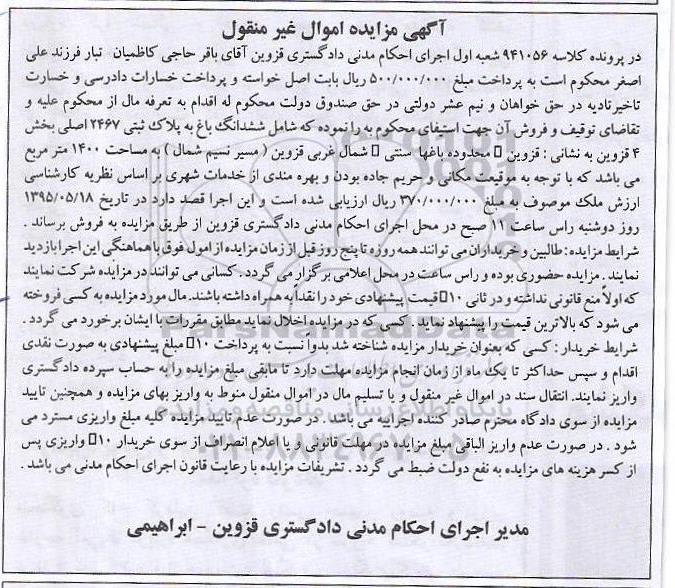 آگهی مزایده اموال غیر منقول
در پرونده کلاسه ۹۴۱۰۵۶ شعبه اول اجرای احکام مدنی دادگستری قزوین آقای باقر حاجی کاظمیان تبار فرزند علی
اصغر محکوم است به پرداخت مبلغ ۵۰۰/۰۰۰/۰۰۰ ریال بابت اصل خواسته و پرداخت خسارات دادرسی و خسارت
تاخیرتادیه در حق خواهان و نیم عشر دولتی در حق صندوق دولت محکوم له اقدام به تعرفه مال از محکوم علیه و
تقاضای توقیف و فروش آن جهت استیفای محکوم به را نموده که شامل ششدانگ باغ به پلاک ثبتی ۲۴۶۷ اصلی بخش
۴ قزوین به نشانی : قزوین محدوده باغها سنتی شمال غربی قزوین ( مسیر نسیم شمال ) به مساحت ۱۴۰۰ متر مربع
می باشد که با توجه به موقیعت مکانی و حریم جاده بودن و بهره مندی از خدمات شهری بر اساس نظریه کارشناسی
ارزش ملک موصوف به مبلغ ۳۷۰/۰۰۰/۰۰۰ ریال ارزیابی شده است و این اجرا قصد دارد در تاریخ ۱۳۹۵/۰۵/۱۸
روز دوشنبه راس ساعت ۱۱ صبح در محل اجرای احکام مدنی دادگستری قزوین از طریق مزایده به فروش برساند .
شرایط مزایده : طالبین و خریداران می توانند همه روزه تا پنج روز قبل از زمان مزایده از امول فوق با هماهنگی این اجرا بازدید
نمایند . مزایده حضوری بوده و راس ساعت در محل اعلامی برگزار می گردد . کسانی می توانند در مزایده شرکت نمایند
که اولاً منع قانونی نداشته و در ثانی ۱۰ قیمت پیشنهادی خود را نقدا به همراه داشته باشند. مال مورد مزایده به کسی فروخته
می شود که بالاترین قیمت را پیشنهاد نماید . کسی که در مزایده اخلال نماید مطابق مقررات با ایشان برخورد می گردد .
شرایط خریدار : کسی که بعنوان خریدار مزایده شناخته شد بدوا نسبت به پرداخت ۱۰ مبلغ پیشنهادی به صورت نقدی
اقدام و سپس حداکثر تا یک ماه از زمان انجام مزایده مهلت دارد تا مابقی مبلغ مزایده را به حساب سپرده دادگستری
واریز نمایند. انتقال سند در اموال غیر منقول و یا تسلیم مال در اموال منقول منوط به واریز بهای مزایده و همچنین تایید
مزایده از سوی دادگاه محترم صادر کننده اجراییه می باشد . در صورت عدم تایید مزایده کلیه مبلغ واریزی مسترد می
شود . در صورت عدم واریز الباقی مبلغ مزایده در مهلت قانونی و یا اعلام انصراف از سوی خریدار ۱۰ واریزی پس
از کسر هزینه های مزایده به نفع دولت ضبط می گردد . تشریفات مزایده با رعایت قانون اجرای احکام مدنی می باشد .
مدیر اجرای احکام مدنی دادگستری قزوین - ابراهیمی